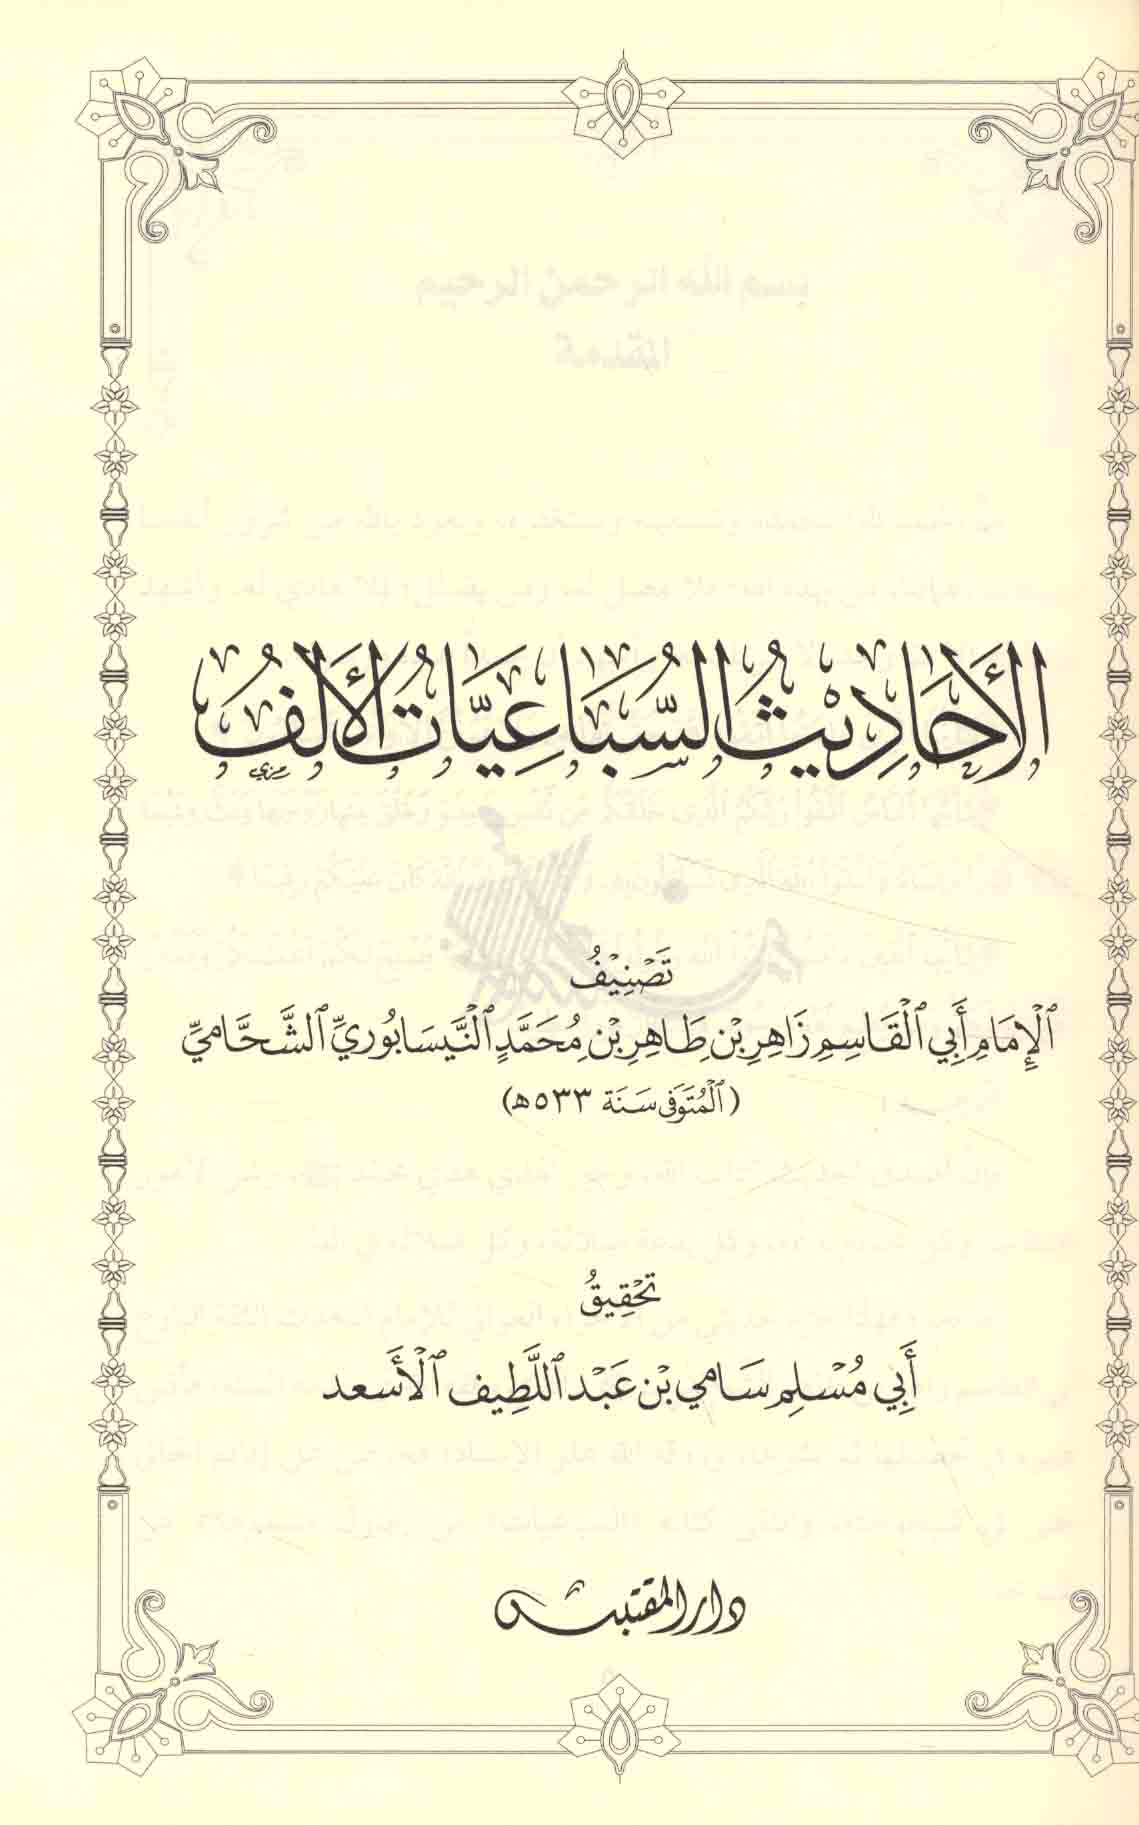 الأَحَادِيْثُ السُّبَاعِيَّاتُ الأَلْفُ
تَصْنِيْفُ
ٱلْإِمَامِ أَبِي ٱلْقَاسِمِ زَاهِرِ بْنِ طَاهِرِ بْنِ مُحَمَّدٍ ٱلنَّيْسَابُورِيِّ ٱلشَّحَّامِيِّ
(ٱلْمُتَوَفَّى سَنَة ٥٣٣ هـ)
تَحْقِيقُ
أَبِي مُسْلِم سَامِي بْن عَبْد اللَّطِيف ٱلْأَسعد
دار المقتبس